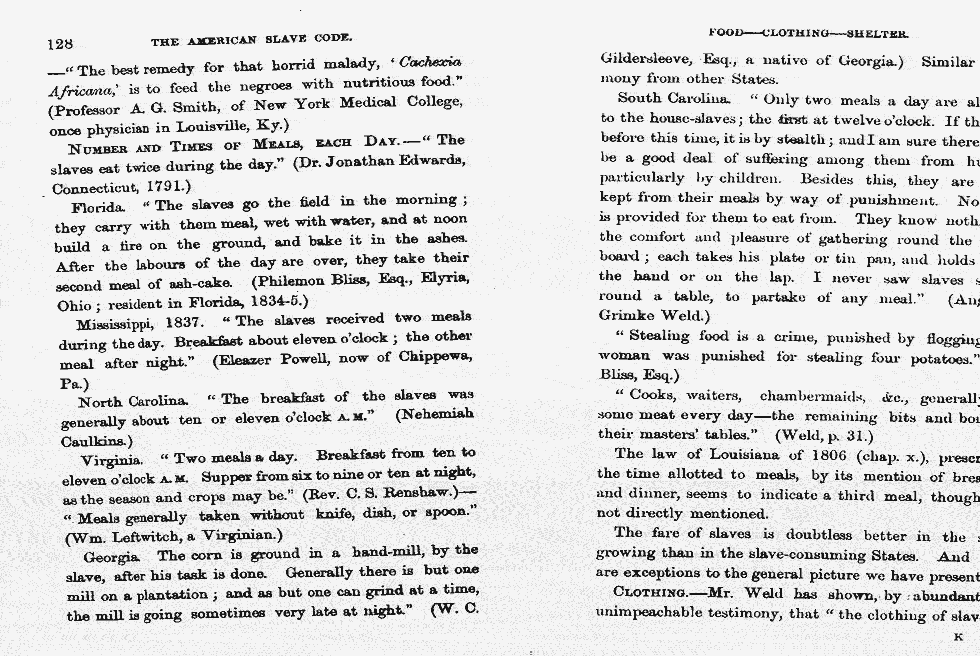 128 THE AMERICAN SLAVE CODE.
—“ The best remedy for that horrid malady, ‘ Cachexia
Africana,’ is to feed the negroes with nutritious food.”
(Professor A. G. Smith, of New York Medical College,
once physician in Louisville, Ky.)
NUMBER AND TIMES OF MEALS, EACH DAY.—“ The
slaves eat twice during the day.” (Dr. Jonathan Edwards,
Connecticut, 1791.)
Florida. “ The slaves go the field in the morning ;
they carry with them meal, wet with water, and at noon
build a fire on the ground, and bake it in the ashes.
After the labours of the day are over, they take their
second meal of ash-cake. (Philemon Bliss, Esq., Elyria,
Ohio ; resident in Florida, 1834-5.)
Mississippi, 1837. “ The slaves received two meals
during the day. Breakfast about eleven o’clock ; the other
meal after night.” (Eleazer Powell, now of Chippewa,
Pa.)
North Carolina. “ The breakfast of the slaves was
generally about ten or eleven o’clock A.M.” (Nehemiah
Caulkins.)
Virginia. “ Two meals a day. Breakfast from ten to
eleven o’clock A.M. Supper from six to nine or ten at night,
as the season and crops may be.” (Rev. C. S. Renshaw.)—
“ Meals generally taken without knife, dish, or spoon.”
(Wm. Leftwitch, a Virginian.)
Georgia. The corn is ground in a hand-mill, by the
slave, after his task is done. Generally there is but one
mill on a plantation ; and as but one can grind at a time,
the mill is going sometimes very late at night.” (W. C.
FOOD—CLOTHING—SHELTER.
Gildersleeve, Esq., a native of Georgia.) Similar
mony from other States.
South Carolina. “ Only two meals a day are al
to the house-slaves ; the first at twelve o’clock. If th
before this time, it is by stealth ; and I am sure there
be a good deal of suffering among them from hu
particularly by children. Besides this, they are
kept from their meals by way of punishment. No
is provided for them to eat from. They know noth
the comfort and pleasure of gathering round the
board ; each takes his plate or tin pan, and holds
the hand or on the lap. I never saw slaves s
round a table, to partake of any meal.” (Ang
Grimke Weld.)
“ Stealing food is a crime, punished by flogging
woman was punished for stealing four potatoes.”
Bliss, Esq.)
“ Cooks, waiters, chambermaids, &c., generally
some meat every day—the remaining bits and bo
their masters’ tables.” (Weld, p. 31.)
The law of Louisiana of 1806 (chap. x.), prescr
the time allotted to meals, by its mention of brea
and dinner, seems to indicate a third meal, though
not directly mentioned.
The fare of slaves is doubtless better in the s
growing than in the slave-consuming States. And
are exceptions to the general picture we have present
CLOTHING.—Mr. Weld has shown, by abundant
unimpeachable testimony, that “ the clothing of slav
K